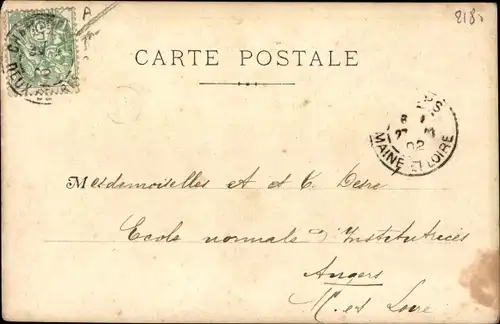 2185
A
CARTE POSTALE
MAINE ET LOIRE
02
Mesdemoiselles A et C. Desre
Ecole normale d'Institutrices
Angers
M. et Loire